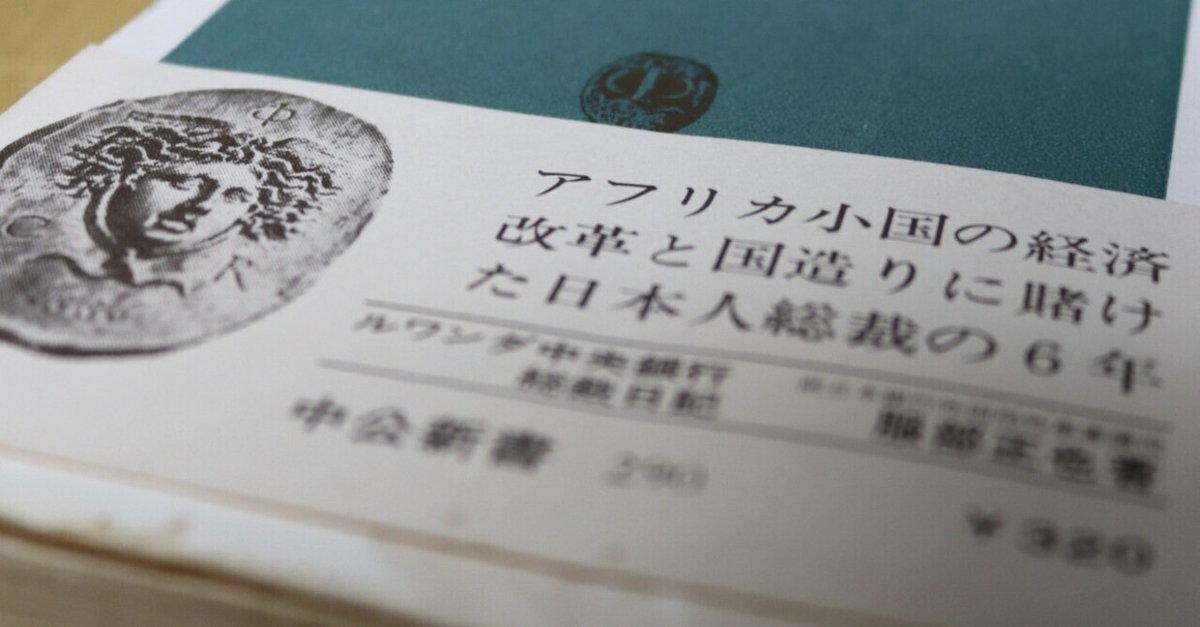 アフリカ小国の経済
改革と国造りに賭け
た日本人総裁の6年
ルワンダ中央銀行
総裁日記
服部正也著
中公新書 290
¥320